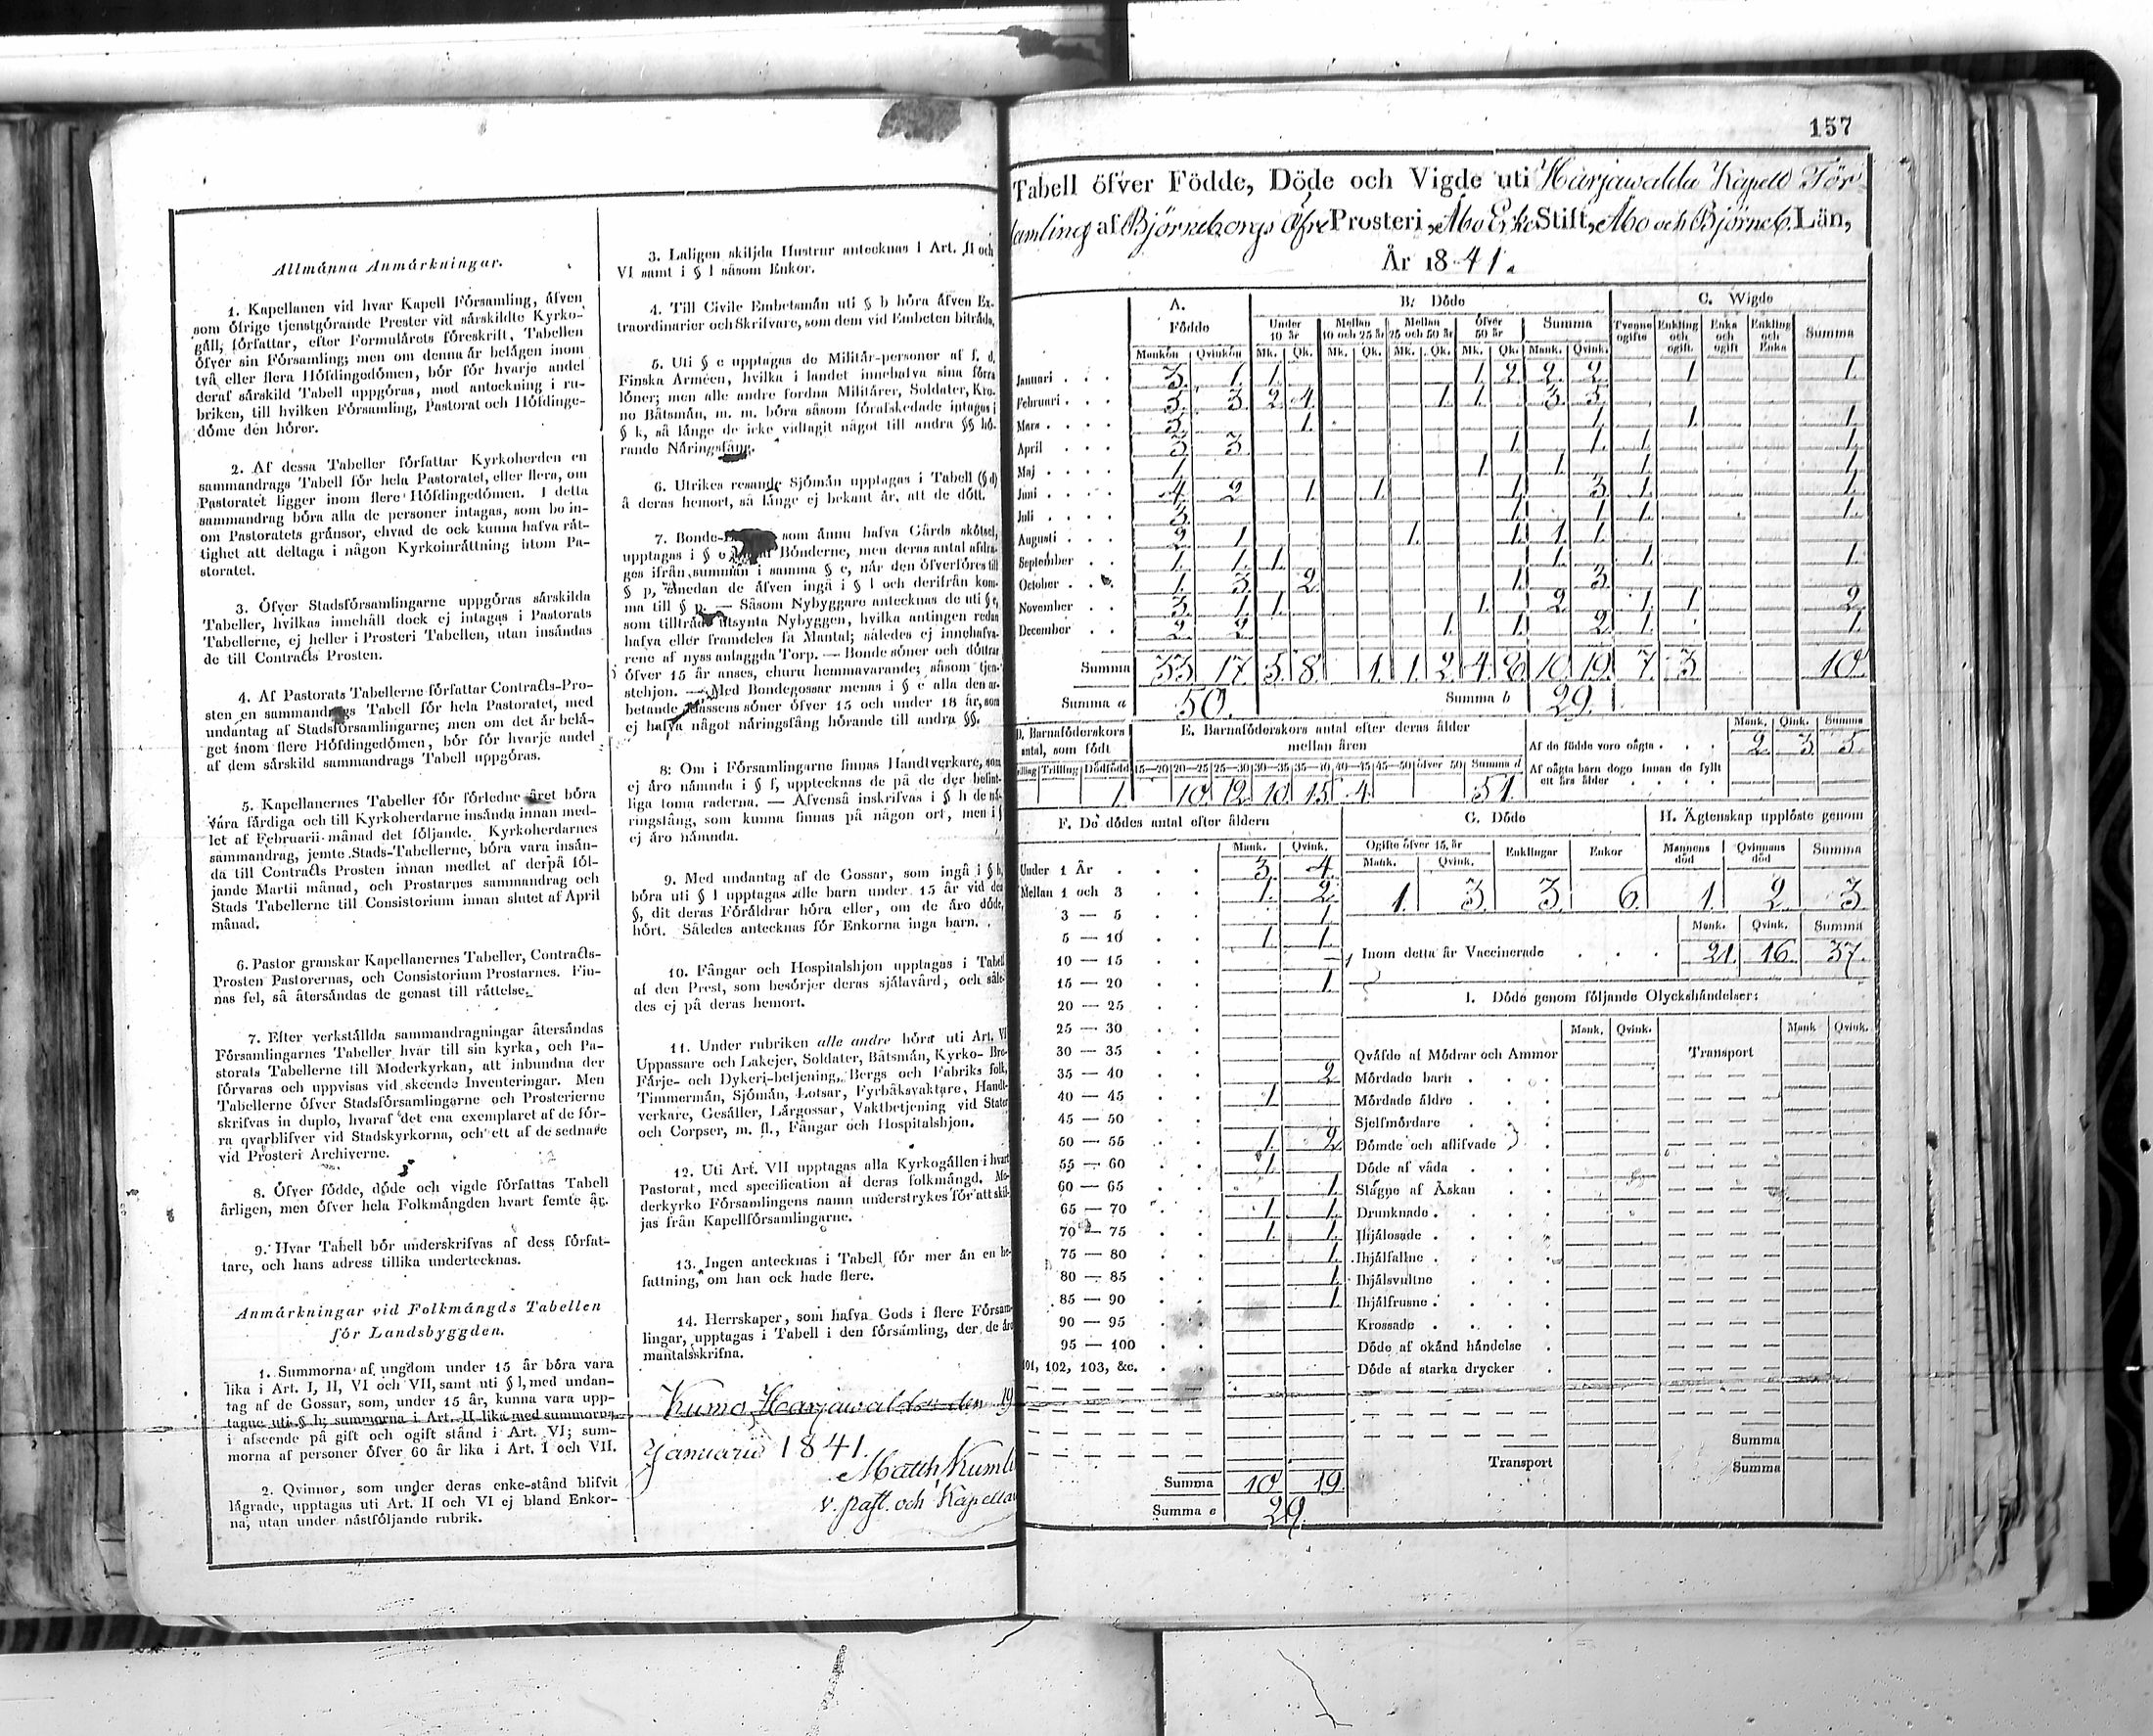 Allmånna Anmårkningar.
1. Kapellanen vid hvar Kapell Församling, åfven
som öfrige tjenstgörande Prester vid sårskildte Kyrko-
gåll, författar, efter Formulårets föreskrift, Tabellen
öfver sin Församling; men om denna år belågen inom
två eller flera Höfdingedömen, bör för hvarje andel
deraf sårskild Tabell uppgöras, med anteckning i ru-
briken, till hvilken Församling, Pastorat och Höfdinge-
döme den hörer.
2. Af dessa Tabeller författar Kyrkoherden en
sammandrags Tabell för hela Pastoratet, eller flera, om
Pastoratet ligger inom flere Höfdingedömen. I detta
sammandrag böra alla de personer intagas, som bo in-
om Pastoratets grånsor, ehvad de ock kunna hafva råt-
tighet att deltaga i någon Kyrkoinråttning utom Pa-
storatet.
3. Öfver Stadsförsamlingarne uppgöras sårskilda
Tabeller, hvilkas innehåll dock ej intages i Pastorats
Tabellerne, ej heller i Prosteri Tabellen, utan insåndas
de till Contracts Prosten.
4. Af Pastorats Tabellerne författar Contracts-Pro-
sten en sammandrags Tabell för hela Pastoratet, med
undantag af Stadsförsamlingarne; men om det år belå-
get inom flere Höfdingedömen, bör för hvarje andel
af dem sårskild sammandrags Tabell uppgöras.
5. Kapellanernes Tabeller för förledne året böra
våra fårdiga och till Kyrkoherdarne insånda innan med-
let af Februarii månad det följande. Kyrkoherdarnes
sammandrag, jemte Stads-Tabellerne, böra vara insån-
da till Contracts Prosten innan medlet af derpå föl-
jande Martii månad, och Prostarnes sammandrag och
Stads Tabellerne till Consistorium innan slutet af April
månad.
6. Pastor granskar Kapellanernes Tabeller, Contracts-
Prosten Pastorernas, och Consistorium Prostarnes. Fin-
nas fel, så återsåndas de genast till råttelse.
7. Efter verkstållda sammandragningar återsåndas
Församlingarnes Tabeller hvar till sin kyrka, och Pa-
storats Tabellerne till Moderkyrkan, att inbundna der
förvaras och uppvisas vid skeende Inventeringar. Men
Tabellerne öfver Stadsförsamlingarne och Prosterierne
skrifvas in duplo, hvaraf det ena exemplaret af de för-
ra qvarblifver vid Stadskyrkorna, och ett af de sednare
vid Prosteri Archiverne.
8. Öfver födde, döde och vigde författas Tabell
årligen, men öfver hela Folkmångden hvart femte år.
9. Hvar Tabell bör underskrifvas af dess förfat-
tare, och hans adress tillika undertecknas.
Anmårkningar vid Folkmångds Tabellen
för Landsbyggden.
1. Summorna af ungdom under 15 år böra vara
lika i Art. I, II, VI och VII, samt uti § l, med undan-
tag af de Gossar, som, under 15 år, kunna vara upp-
tagne uti § h; summorna i Art. II lika med summorna
i afseende på gift och ogift stånd i Art. VI; sum-
morna af personer öfver 60 år lika i Art. I och VII.
2. Qvinnor, som under deras enke-stånd blifvit
lågrade, upptagas uti Art. II och VI ej bland Enkor-
na, utan under nåstföljande rubrik.
3. Laligen skiljda Hustrur antecknas i Art. II och
VI samt i § l såsom Enkor.
4. Till Civile Embetsmån uti § b höra åfven Ex-
traordinarier och Skrifvare, som dem vid Embeten bitråda.
5. Uti § c upptagas de Militår-personer af f. d.
Finska Armeen, hvilka i landet innehafva sina förra
löner; men alle andre fordna Militårer, Soldater, Kro-
no Båtsmån, m. m. böra såsom förafskedade intagas i
§ k, så långe de icke vidtagit något till andra §§ hö-
rande Nåringsfång.
6. Utrikes resande Sjömån upptagas i Tabell (§ d)
å deras hemort, så långe ej bekant år, att de dött.
7. Bonde- som ånnu hafva Gårds skötsel,
upptagas i § e Bönderne, men deras antal afdra-
ges ifrån summan i samma § e, når den öfverföres till
§ p, emedan de åfven ingå i § l och derifrån kom-
ma till § p. — Såsom Nybyggare antecknas de uti § e,
som tilltrådt utsynta Nybyggen, hvilka antingen redan
hafva eller framdeles få Mantal; således ej innehafva-
rene af nyss anlaggda Torp. — Bonde söner och döttrar
öfver 15 år anses, ehuru hemmavarande, såsom tjen-
stehjon. — Med Bondegossar menas i § e alla den ar-
betande klassens söner öfver 15 och under 18 år, som
ej hafva något nåringsfång hörande till andra §§.
8: Om i Församlingarne finnas Handtverkare, som
ej åro nåmnda i § f, upptecknas de på de der befint-
liga toma raderna. — Åfvenså inskrifvas i § h de nå-
ringsfång, som kunna finnas på någon ort, men i §
ej åro nåmnda.
9. Med undantag af de Gossar, som ingå i § h,
böra uti § l upptagas alle barn under 15 år vid den
§, dit deras Föråldrar höra eller, om de åro döde,
hört. Således antecknas för Enkorna inga barn.
10. Fångar och Hospitalshjon upptagas i Tabell
af den Prest, som besörjer deras sjålavård, och såle-
des ej på deras hemort.
11. Under rubriken alle andre höra uti Art. VI
Uppassare och Lakejer, Soldater, Båtsmån, Kyrko- Bro-
Fårje- och Dykeri-betjening, Bergs och Fabriks folk,
Timmermån, Sjömån, Lotsar, Fyrbåksvaktare, Handt-
verkare, Gesåller, Lårgossar, Vaktbetjening vid Stater
och Corpser, m. fl., Fångar och Hospitalshjon.
12. Uti Art. VII upptagas alla Kyrkogållen i hvart
Pastorat, med specification af deras folkmångd. Mo-
derkyrko Församlingens namn understrykes för att skil-
jas från Kapellförsamlingarne.
13. Ingen antecknas i Tabell för mer ån en be-
fattning, om han ock hade flere.
14. Herrskaper, som hafva Gods i flere Försam-
lingar, upptagas i Tabell i den församling, der de åro
mantalsskrifna.
Kumo Harjawalda den 19
Januarii 1841.
Matth. Kumli
v. past. och Kapellan
157
Tabell öfver Födde, Döde och Vigde uti Harjawalda Kapell För
samling af Björneborgs Öfre Prosteri, Åbo Erke Stift, Åbo och Björneb. Län,
År 1841.
A. Födde B. Döde C. Wigde
Under 10 år Mellan 10 och 25 år Mellan 25 och 50 år Öfver 50 år Summa Tvenne ogifte Enkling och ogift Enka och ogift Enkling och Enka Summa
Mankön Qvinkön Mk. Qk. Mk. Qk. Mk. Qk. Mk. Qk. Mank. Qvink.
Januari 3 1 1 1 2 2 2 1 1
Februari 3 3 2 4 1 1 3 5
Mars 5 1 1 1 1
April 3 3 1 1 1 1
Maj 1 1 1 1 1
Juni 4 2 1 1 1 3 1 1
Juli 5 1 1 1 1
Augusti 2 1 1 1 1 1
September 1 1 1 1 1 1
October 1 3 2 1 3
November 3 1 1 1 2 1 1 2
December 2 2 1 1 2 1 1
Summa 33 17 5 8 1 1 2 4 8 10 19 7 3 10
Summa a 50. Summa b 29.
D. Barnaföderskors antal, som födt
Tvilling Trilling Dödfödd
1
E. Barnaföderskors antal efter deras ålder mellan åren
15—20 20—25 25—30 30—35 35—40 40—45 45—50 öfver 50 Summa d
10 12 10 15 4 51.
Mank. Qink. Summa
Af de födde voro oågta 2 3 5
Af oågta barn dogo innan de fyllt
ett års ålder
F. De dödes antal efter åldern
Mank. Qvink.
Under 1 År 3 4
Mellan 1 och 3 1 2
3 — 5 1
5 — 10 1 1
10 — 15
15 — 20 1
20 — 25
25 — 30
30 — 35
35 — 40 2
40 — 45 1
45 — 50
50 — 55 1 2
55 — 60 1
60 — 65 1
65 — 70 1 1
70 — 75 1 1
75 — 80 1
80 — 85 1
85 — 90 1
90 — 95
95 — 100
101, 102, 103, &c.
Summa 10 19
Summa e 29.
G. Döde
Ogifte öfver 15 år Enklingar Enkor
Mank. Qvink.
1 3 3 6
H. Ågtenskap upplöste genom
Mannens död Qvinnans död Summa
1 2 3
Mank. Qvink. Summa
Inom detta år Vaccinerade 21 16 37.
I. Döde genom följande Olyckshåndelser:
Mank. Qvink. Mank Qvink.
Qvåfde af Mödrar och Ammor Transport
Mördade barn
Mördade åldre
Sjelfmördare
Dömde och aflifvade
Döde af våda
Slagne af Åskan
Drunknade
Ihjålosade
Ihjålfallne
Ihjålsvultne
Ihjålfrusne
Krossade
Döde af okånd håndelse
Döde af starka drycker
Summa
Transport Summa